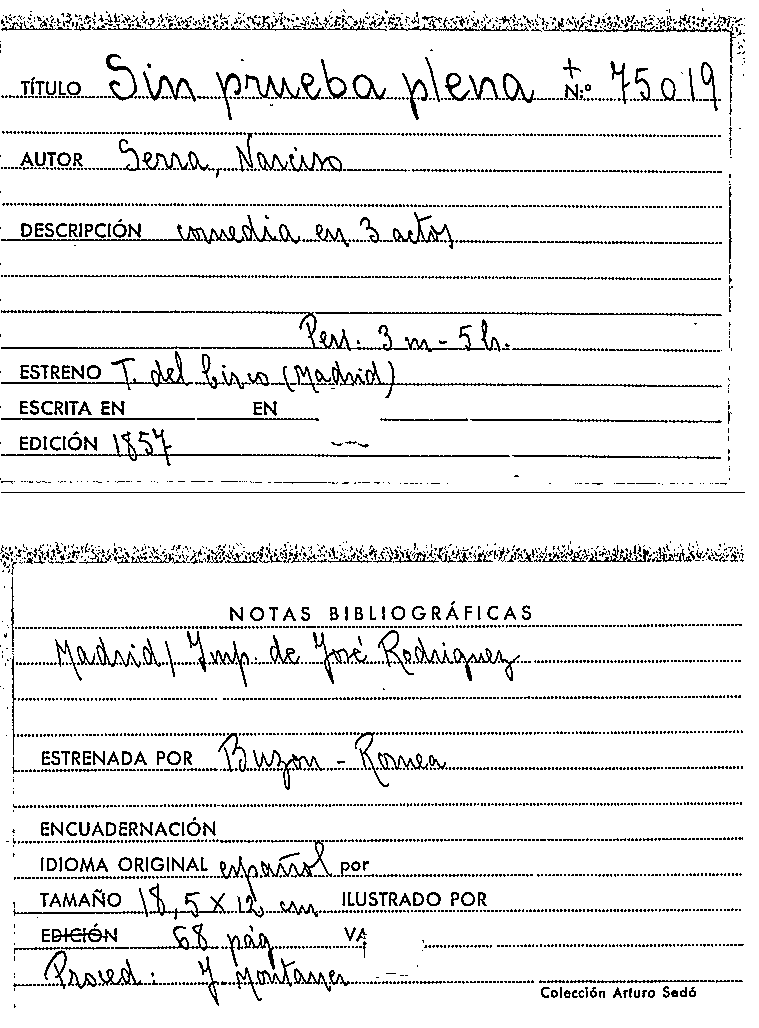 TÍTULO Sin prueba plena + N.º 75019
AUTOR Serra, Narciso
DESCRIPCIÓN comedia en 3 actos
Pers. 3 m - 5 h.
ESTRENO T. del Circo (Madrid)
ESCRITA EN EN
EDICIÓN 1857
NOTAS BIBLIOGRÁFICAS
Madrid / Imp. de José Rodriguez
ESTRENADA POR Buzon - Romea
ENCUADERNACIÓN
IDIOMA ORIGINAL español por
TAMAÑO 18,5 X 12 cm ILUSTRADO POR
EDICIÓN 68 pág VA
Proced: J. Montaner
Colección Arturo Sedó